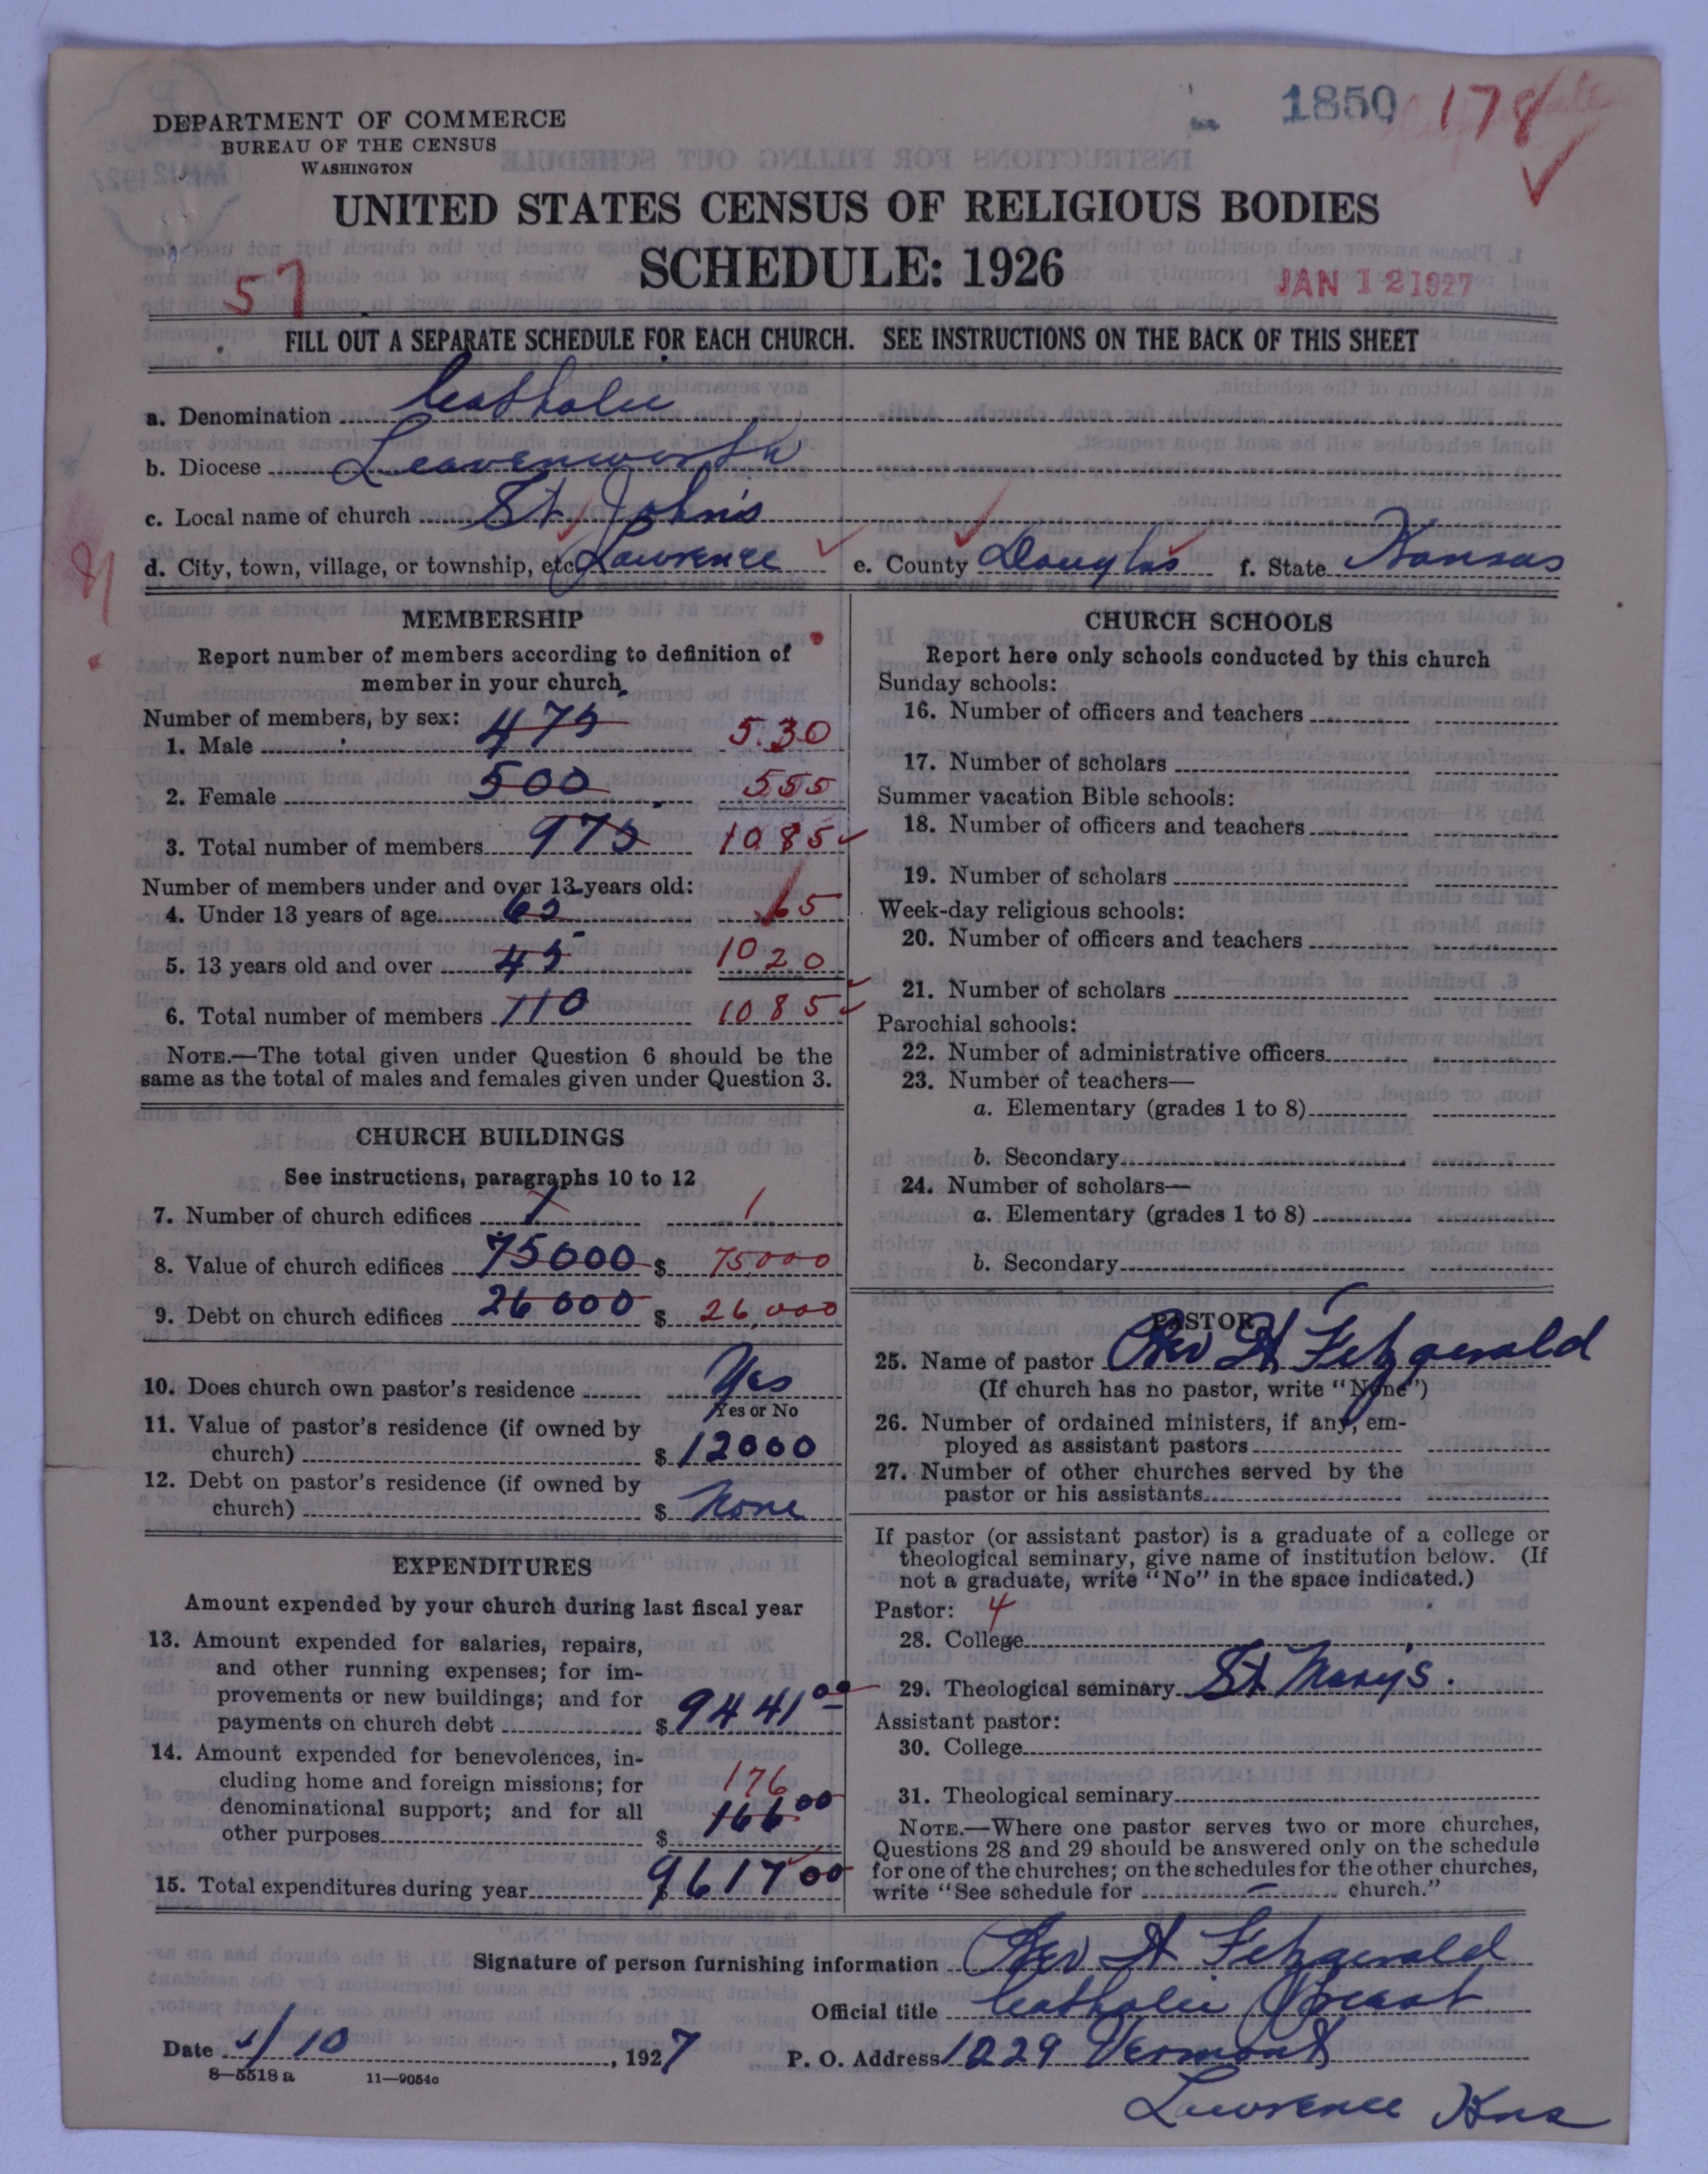 1850 178
DEPARTMENT OF COMMERCE
BUREAU OF THE CENSUS
WASHINGTON
UNITED STATES CENSUS OF RELIGIOUS BODIES
SCHEDULE: 1926
57
JAN 12 1927
FILL OUT A SEPARATE SCHEDULE FOR EACH CHURCH. SEE INSTRUCTIONS ON THE BACK OF THIS SHEET
a. Denomination Catholic
b. Diocese Leavenworth
c. Local name of church St John's
d. City, town, village, or township, etc. Lawrence e. County Douglas f. State Kansas
MEMBERSHIP
Report number of members according to definition of
member in your church.
Number of members, by sex:
1. Male 475 530
2. Female 500 555
3. Total number of members 975 1085
Number of members under and over 13 years old:
4. Under 13 years of age 65 65
5. 13 years old and over 45 1020
6. Total number of members 110 1085
NOTE.—The total given under Question 6 should be the
same as the total of males and females given under Question 3.
CHURCH BUILDINGS
See instructions, paragraphs 10 to 12
7. Number of church edifices 1 1
8. Value of church edifices 75000 $ 75,000
9. Debt on church edifices 26000 $ 26,000
10. Does church own pastor's residence Yes
Yes or No
11. Value of pastor's residence (if owned by
church) $ 12000
12. Debt on pastor's residence (if owned by
church) $ None
EXPENDITURES
Amount expended by your church during last fiscal year
13. Amount expended for salaries, repairs,
and other running expenses; for im-
provements or new buildings; and for
payments on church debt $ 9441 00
14. Amount expended for benevolences, in-
cluding home and foreign missions; for 176
denominational support; and for all 166 00
other purposes $
15. Total expenditures during year $ 9617 00
CHURCH SCHOOLS
Report here only schools conducted by this church
Sunday schools:
16. Number of officers and teachers
17. Number of scholars
Summer vacation Bible schools:
18. Number of officers and teachers
19. Number of scholars
Week-day religious schools:
20. Number of officers and teachers
21. Number of scholars
Parochial schools:
22. Number of administrative officers
23. Number of teachers—
a. Elementary (grades 1 to 8)
b. Secondary
24. Number of scholars—
a. Elementary (grades 1 to 8)
b. Secondary
PASTOR
25. Name of pastor Rev H Fitzgerald
(If church has no pastor, write "None")
26. Number of ordained ministers, if any, em-
ployed as assistant pastors
27. Number of other churches served by the
pastor or his assistants
If pastor (or assistant pastor) is a graduate of a college or
theological seminary, give name of institution below. (If
not a graduate, write "No" in the space indicated.)
Pastor: 4
28. College
29. Theological seminary St Mary's.
Assistant pastor:
30. College
31. Theological seminary
NOTE.—Where one pastor serves two or more churches,
Questions 28 and 29 should be answered only on the schedule
for one of the churches; on the schedules for the other churches,
write "See schedule for church."
Signature of person furnishing information Rev H Fitzgerald
Official title Catholic Priest
Date 1/10, 1927 P. O. Address 1229 Vermont
8—5518 a 11—9054o
Lawrence Kns